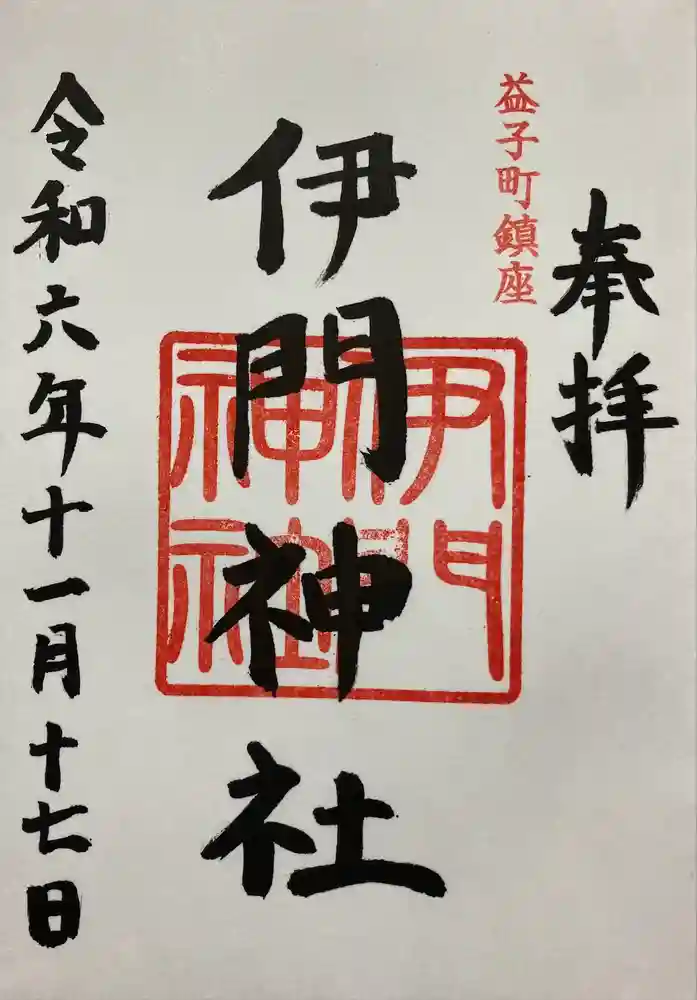 奉拝
益子町鎮座
伊門神社
伊門神社
令和六年十一月十七日